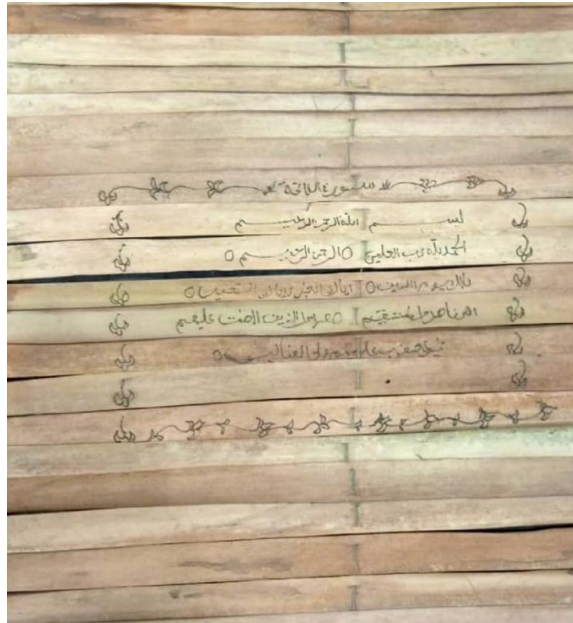 سورة الفاتحة
بسم الله الرحمن الرحيم
الحمد لله رب العلمين ○ الرحمن الرحيم ○
ملك يوم الدين ○ اياك نعبد واياك نستعين ○
اهدنا الصراط المستقيم ○ صراط الذين انعمت عليهم
غير المغضوب عليهم ولا الضالين ○